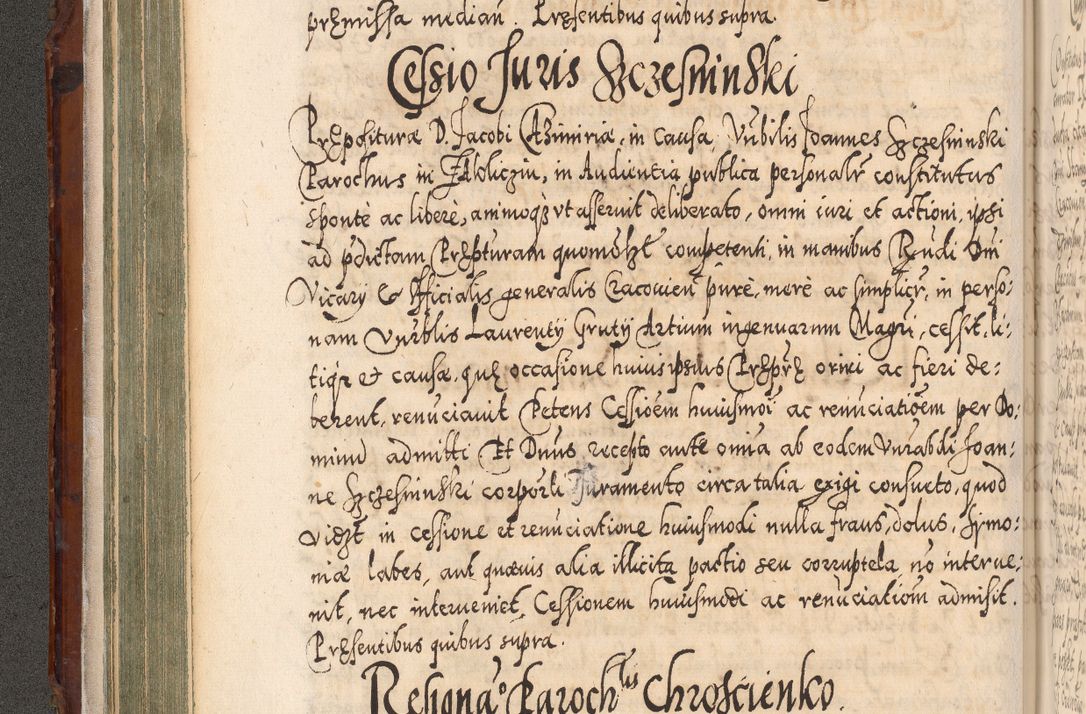 pręmissa median. Pręsentibus quibus supra.
Cessio Juris Szczesninski
Pręposituræ D. Jacobi Casimiriæ, in causa Vnrbilis Joannes Szczesninski
Parochus in, in Audientia publica personalr constitutus
sponte ac liberè, animoq₃ vt asseruit deliberato, omni iuri et actioni, ipsi
ad pdictam Pręptturam quomoḋlt competenti, in manibus Rndi Dni
Vicarÿ & Officialis generalis Cracouien purè, merè ac simplicr, in perso:
nam Vnrblis Laurentÿ Grutÿ Artium ingenuarum Magri, cessit, li:
tiqr et causæ, quę occasione huius ipsius Pręprę oriri ac fieri de:
berent, renuciauit Petens Cessiõem huiusmoi ac renuciatiõem per Do:
minũ admitti Et Dnus recepto ante omĩa ab eodem Vnrabdi Joan:
ne Szczesninski corporli Juramento circa talia exigi consueto, quod
videlt in cessione et renuciatione huiusmodi nulla fraus, dolus, Symo:
niæ labes, aut quæuis alia illicita pactio seu corruptela nõ interue:
nit, nec interueniet, Cessionem huiusmodi ac renuciatiom admisit.
Pręsentibus quibus supra.
Resignao Parochlis Chroscienko.